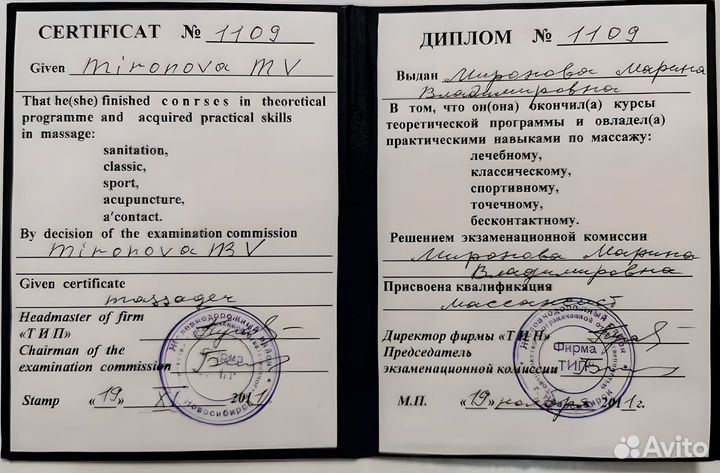 CERTIFICAT № 1109
Given Mironova MV
That he(she) finished conrses in theoretical
programme and acquired practical skills
in massage:
sanitation,
classic,
sport,
acupuncture,
a'contact.
By decision of the examination commission
Mironova MV
Given certificate
massager
Headmaster of firm
«ТИП»
Chairman of the
examination commission
Stamp «19» XI 2011
Новосибирск
ДИПЛОМ № 1109
Выдан Миронова Марина
Владимировна
В том, что он(она) окончил(а) курсы
теоретической программы и овладел(а)
практическими навыками по массажу:
лечебному,
классическому,
спортивному,
точечному,
бесконтактному.
Решением экзаменационной комиссии
Миронова Марина
Владимировна
Присвоена квалификация
массажист
Директор фирмы «ТИП»
Председатель
экзаменационной комиссии
Фирма
ТИП
М.П. «19» ноября 2011г.
Avito